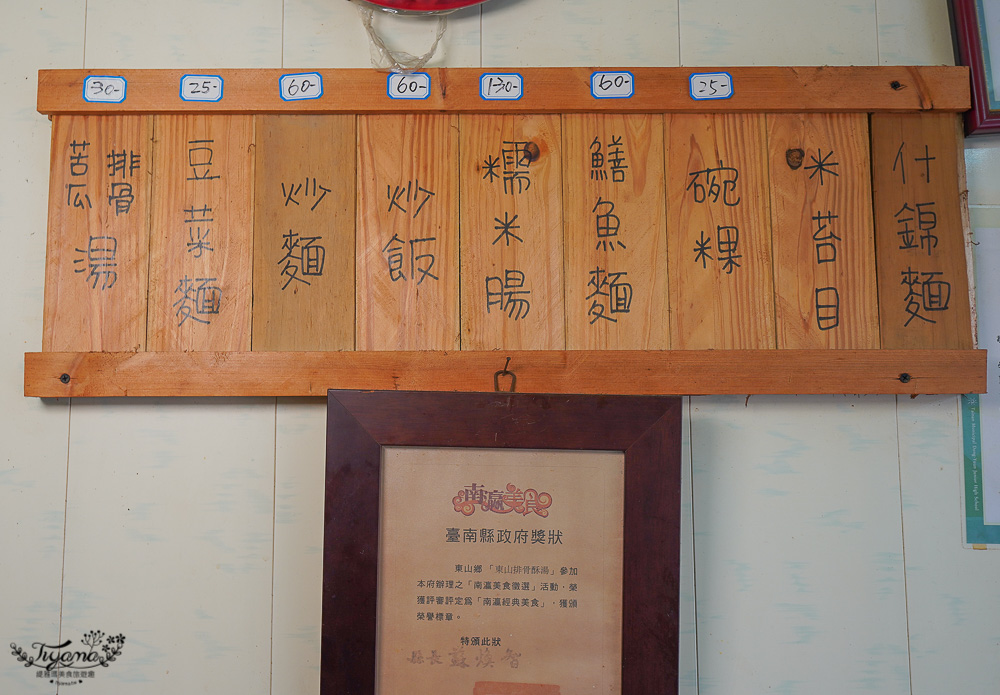 30-
25-
60-
60-
130-
60-
25-
什錦麵
米苔目
碗粿
鱔魚麵
糯米腸
炒飯
炒麵
豆菜麵
排骨
苦瓜
湯
南瀛美食
臺南縣政府獎狀
東山鄉「東山排骨酥湯」參加
本府辦理之「南瀛美食徵選」活動，榮
獲評審評定為「南瀛經典美食」，獲頒
榮譽標章。
特頒此狀
縣長 蘇煥智
Tiyama
緹雅瑪美食旅遊趣